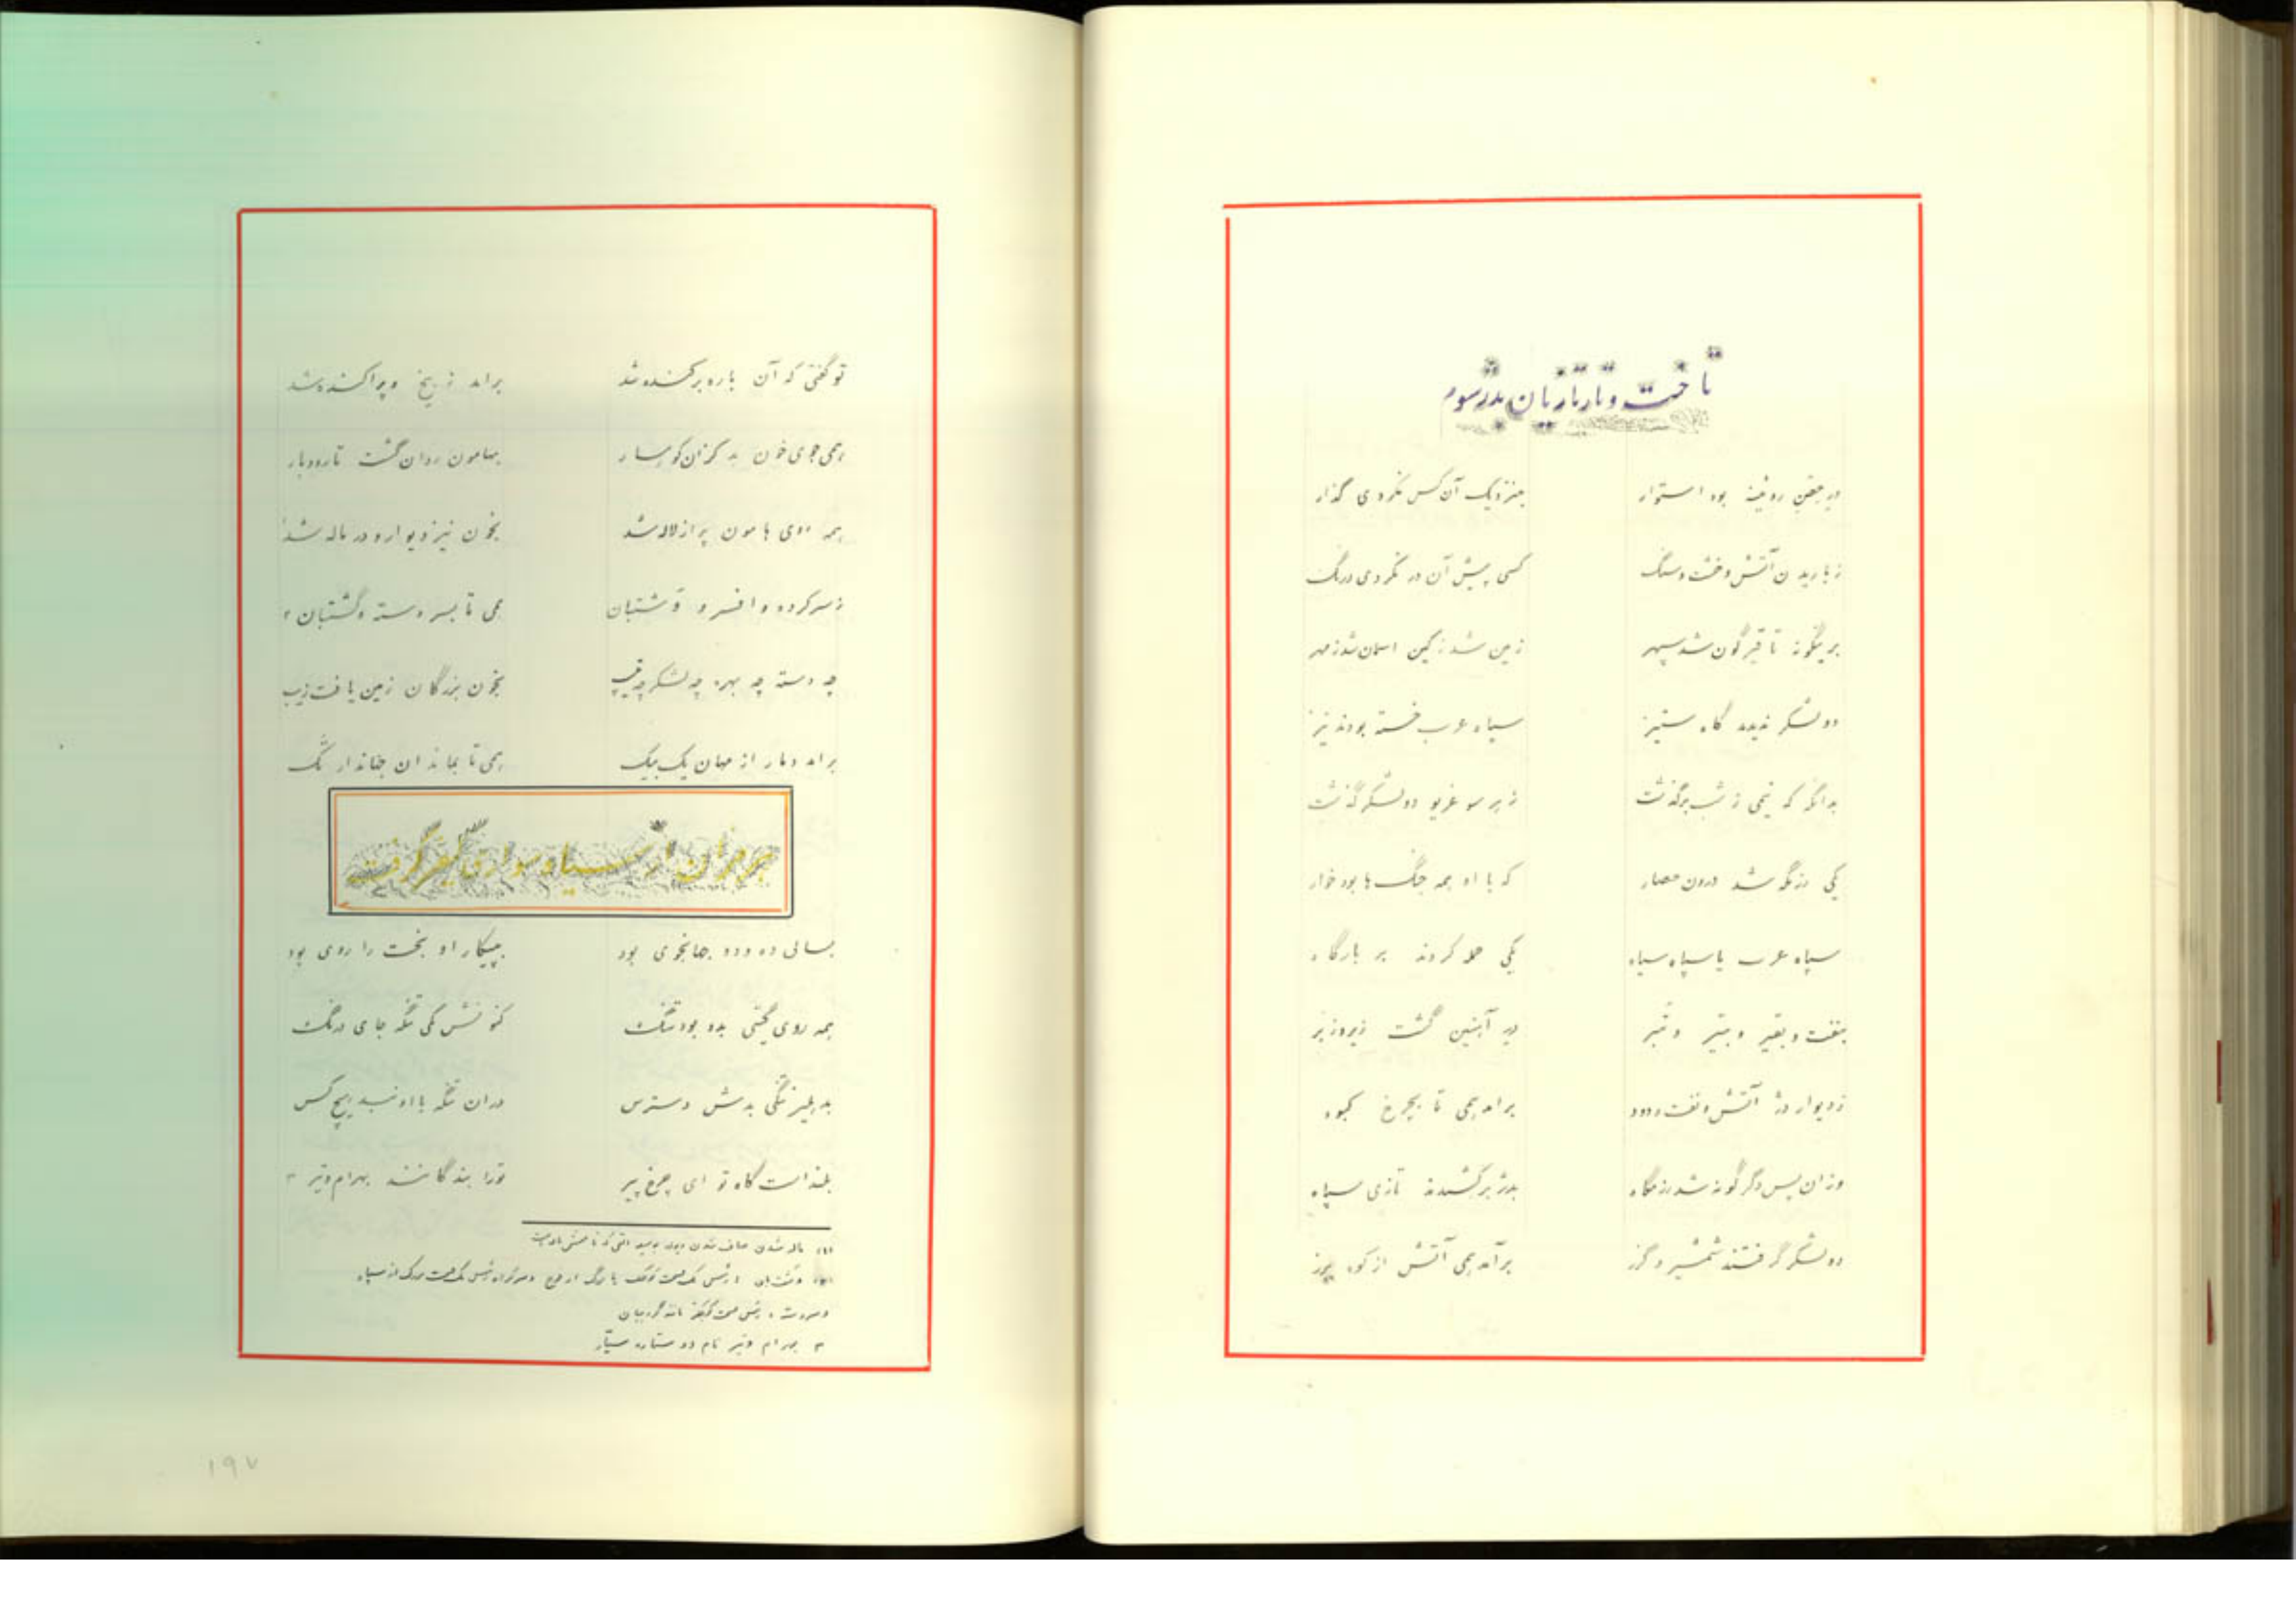 تاخت و تاز تازیان بدژ سوم
در جفتن رویینه بود استوار بنزدیک آن کس نکردی گذار
زباریدن آتش و خشت و سنگ کسی پیش آن در نکردی درنگ
بر اینگونه تا قیرگون شد سپهر زمین شد زکین آسمان شد زمهر
دو لشکر ندیده گاه ستیز سپاه عرب خسته بودند نیز
بدانگه که نیمی ز شب برگذشت زهر سو غریو دو لشکر گذشت
یکی رزمگه شد درون حصار که با او همه جنگ‌ها بود خوار
سپاه عرب با سپاه سیاه یکی حمله کردند بر بارگاه
بنفت و بقیر و بتیر و تبر در آهنین گشت زیر و زبر
ز دیوار دژ آتش و نفت و دود برآمد همی تا بچرخ کبود
وزان پس دگرگونه شد رزمگاه بدژ برکشیدند تازی سپاه
دو لشکر گرفتند شمشیر و گرز برآمد همی آتش از کوه برز
تو گفتی که آن باره برکنده شد برآمد ز بیخ و پراکنده شد
همی جوی خون بد کزان کوهسار بهامون روان گشت تا رودبار
همه روی هامون پر از لاله شد بخون نیز دیوار و در ماله شد
ز سرکرده و افسر و گشتبان همی تا بسر دسته و گشتبان ۲
چه دسته چه بهره چه لشکر چه تیپ بخون بزرگان زمین یافت زیب
برآمد دمار از مهان یک بیک همی تا بماند آن جهاندار تک
هرمزان از سیاه سواری گرفت
بسالی ده و دو جهانجوی بود بپیکار او بخت را روی بود
همه روی گیتی بده بود تنگ کنونش یکی تنگه جای درنگ
بدهلیز تنگی بدش دسترس در آن تنگه با او نبد هیچ کس
بلند است گاه تو ای چرخ پیر تو را بندگانند بهرام و تیر ۳
(۱) ماله شدن صاف شدن
۳ بهرام و تیر نام دو ستاره سیار
۱۹۷